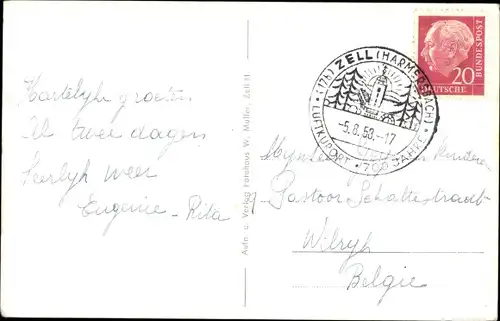 Hartelijke groeten
Al twee dagen
heerlijk weer
Eugenie - Rita
Aufn. u. Verlag Fotohaus W. Müller, Zell H.
(17b) ZELL (HARMERSBACH)
-5.8.58.-17
LUFTKURORT 700 JAHRE
20
DEUTSCHE BUNDESPOST
Pastoor
Wilryk
Belgie